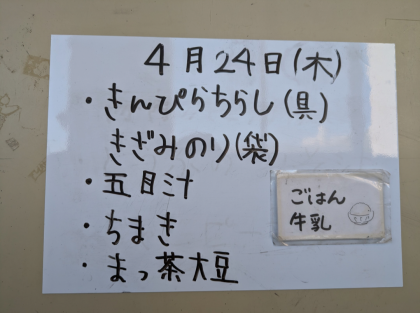 4月24日(木)
・きんぴらちらし(具)
きざみのり(袋)
・五目汁
・ちまき
・まっ茶大豆
ごはん
牛乳